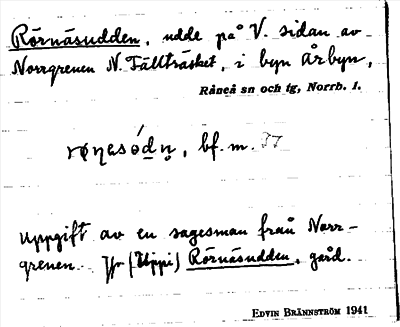 Rörnäsudden, udde på V. sidan av
Norrgrenen N. Fällträsket, i byn Årbyn,
Råneå sn och tg, Norrb. l.
bf. m.
Uppgift av en sagesman från Norr-
grenen. Jfr Rörnäsudden, gård.
EDVIN BRÄNNSTRÖM 1941